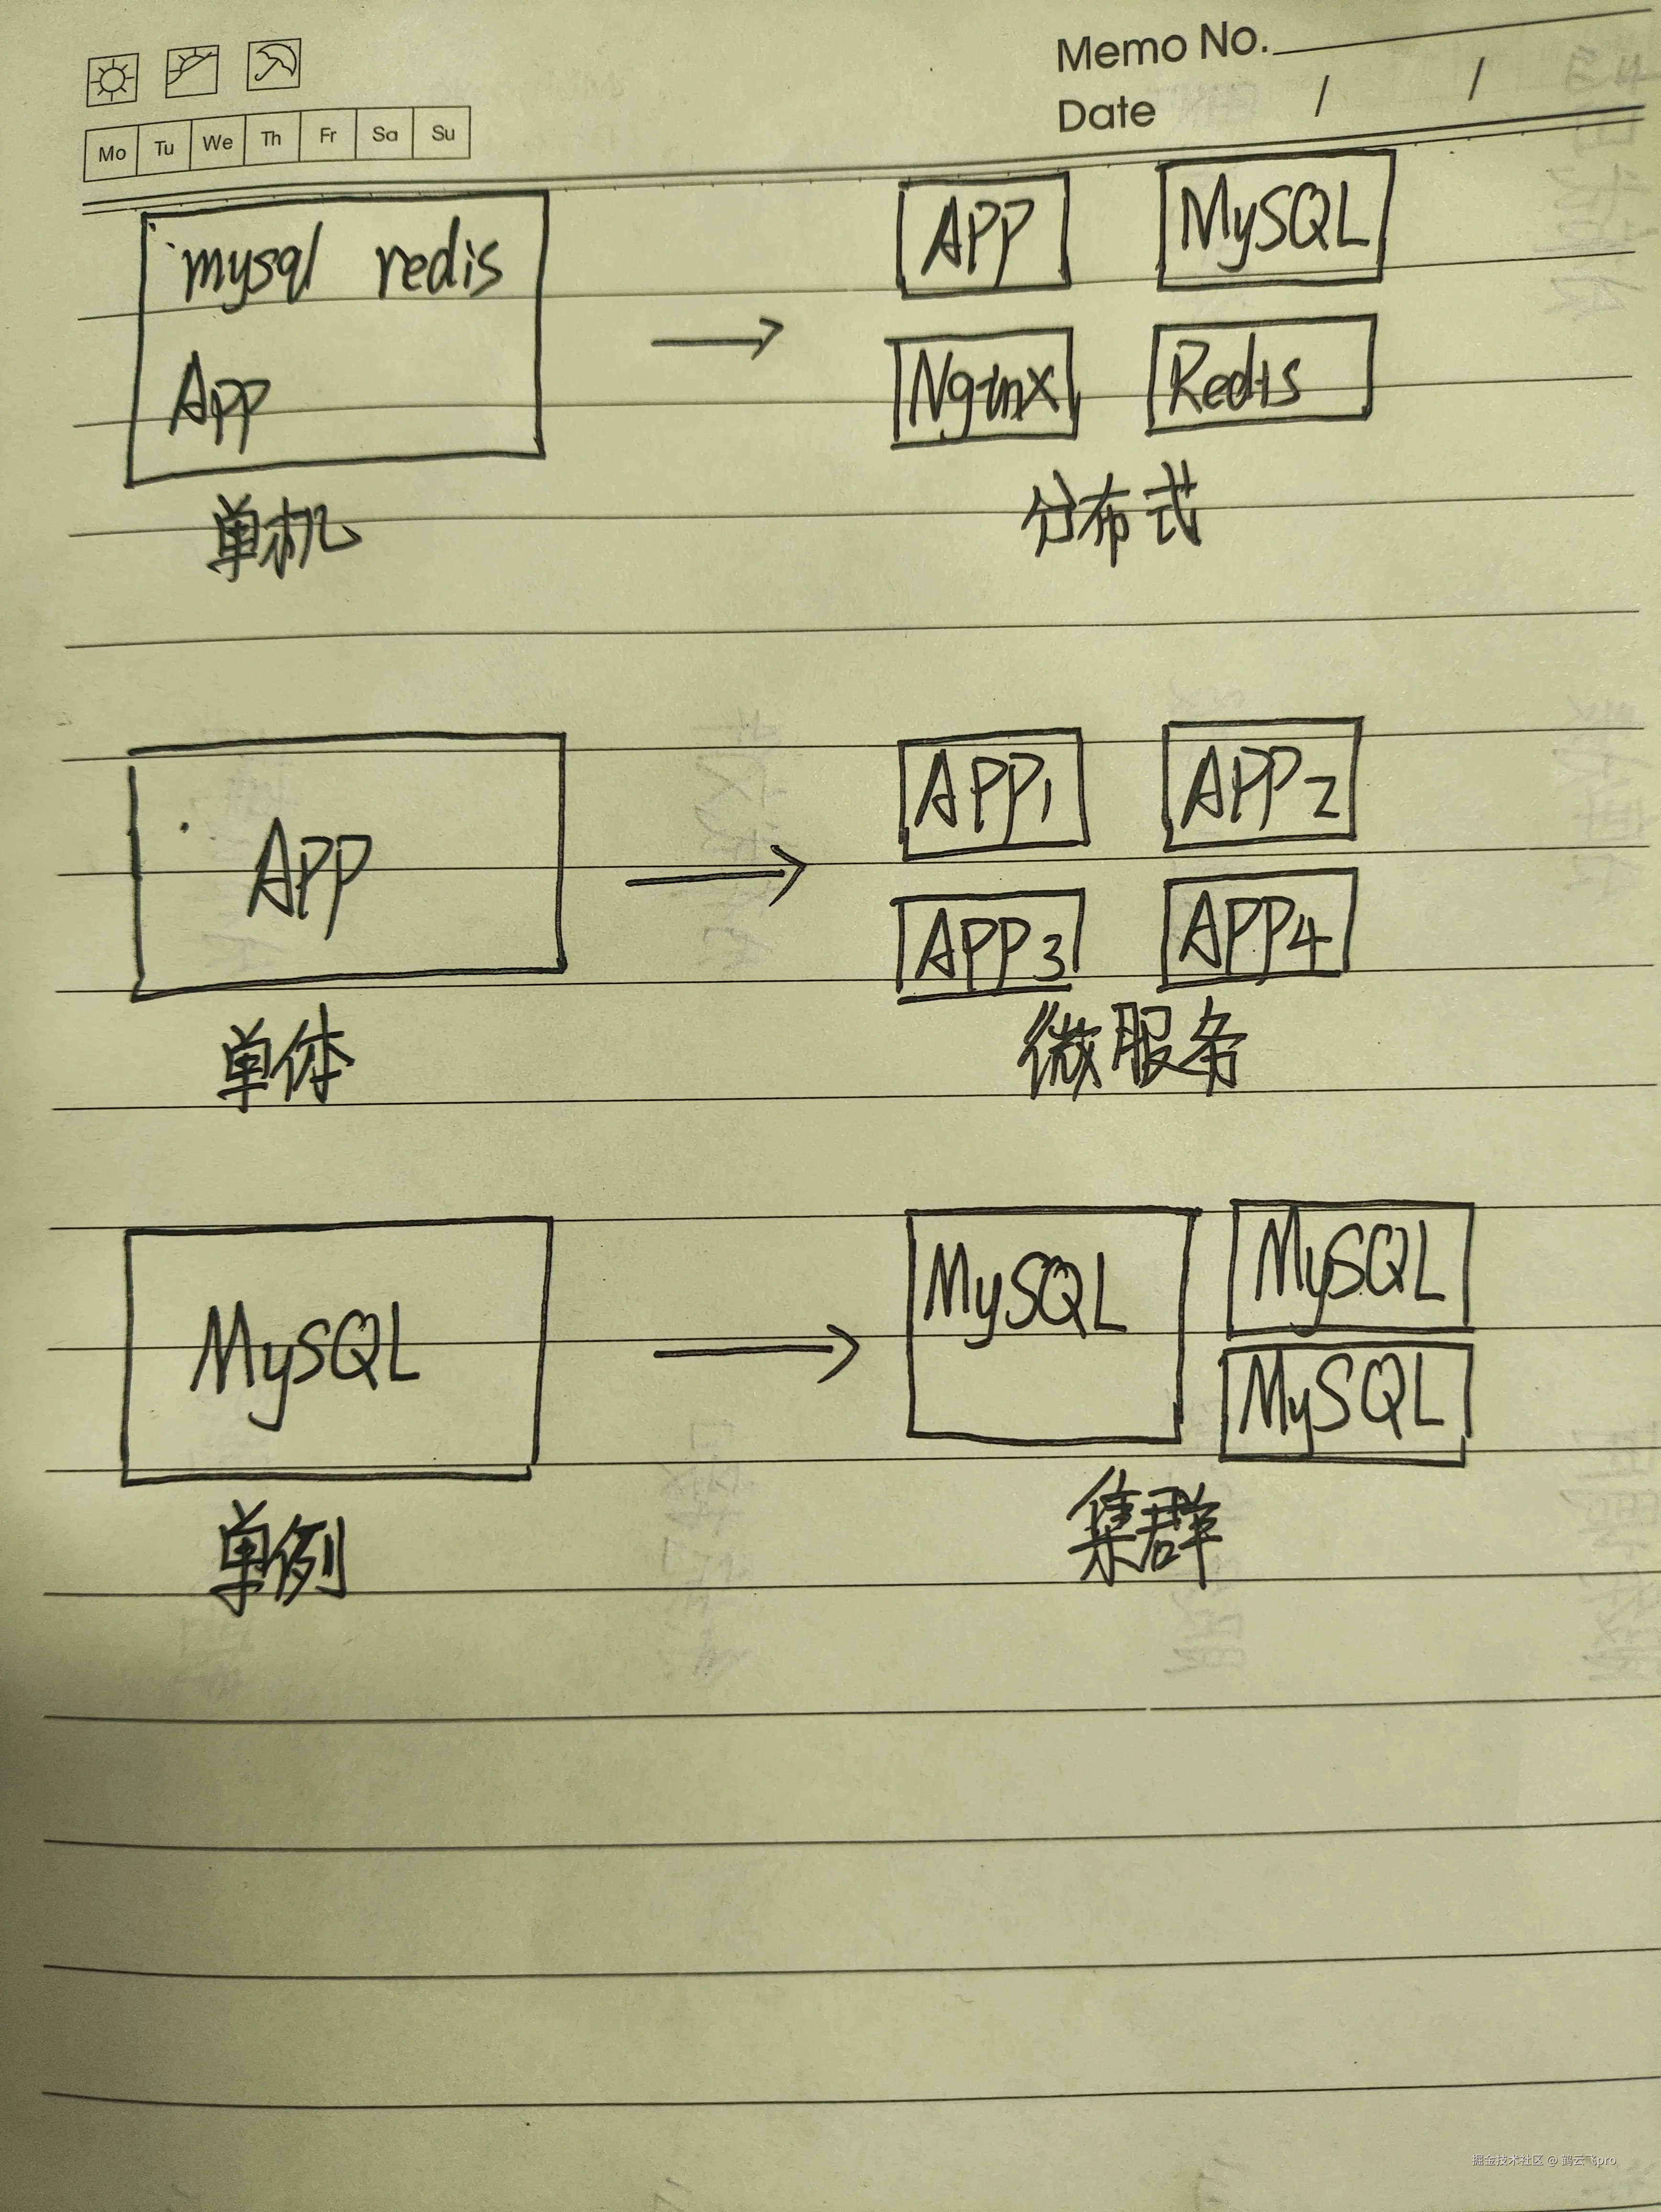 Memo No.
Date / /
Mo Tu We Th Fr Sa Su
mysql redis
App
单机
APP
MySQL
Nginx
Redis
分布式
APP
单体
APP1
APP2
APP3
APP4
微服务
MySQL
单例
MySQL
MySQL
MySQL
集群
掘金技术社区 @ 鹤云飞pro